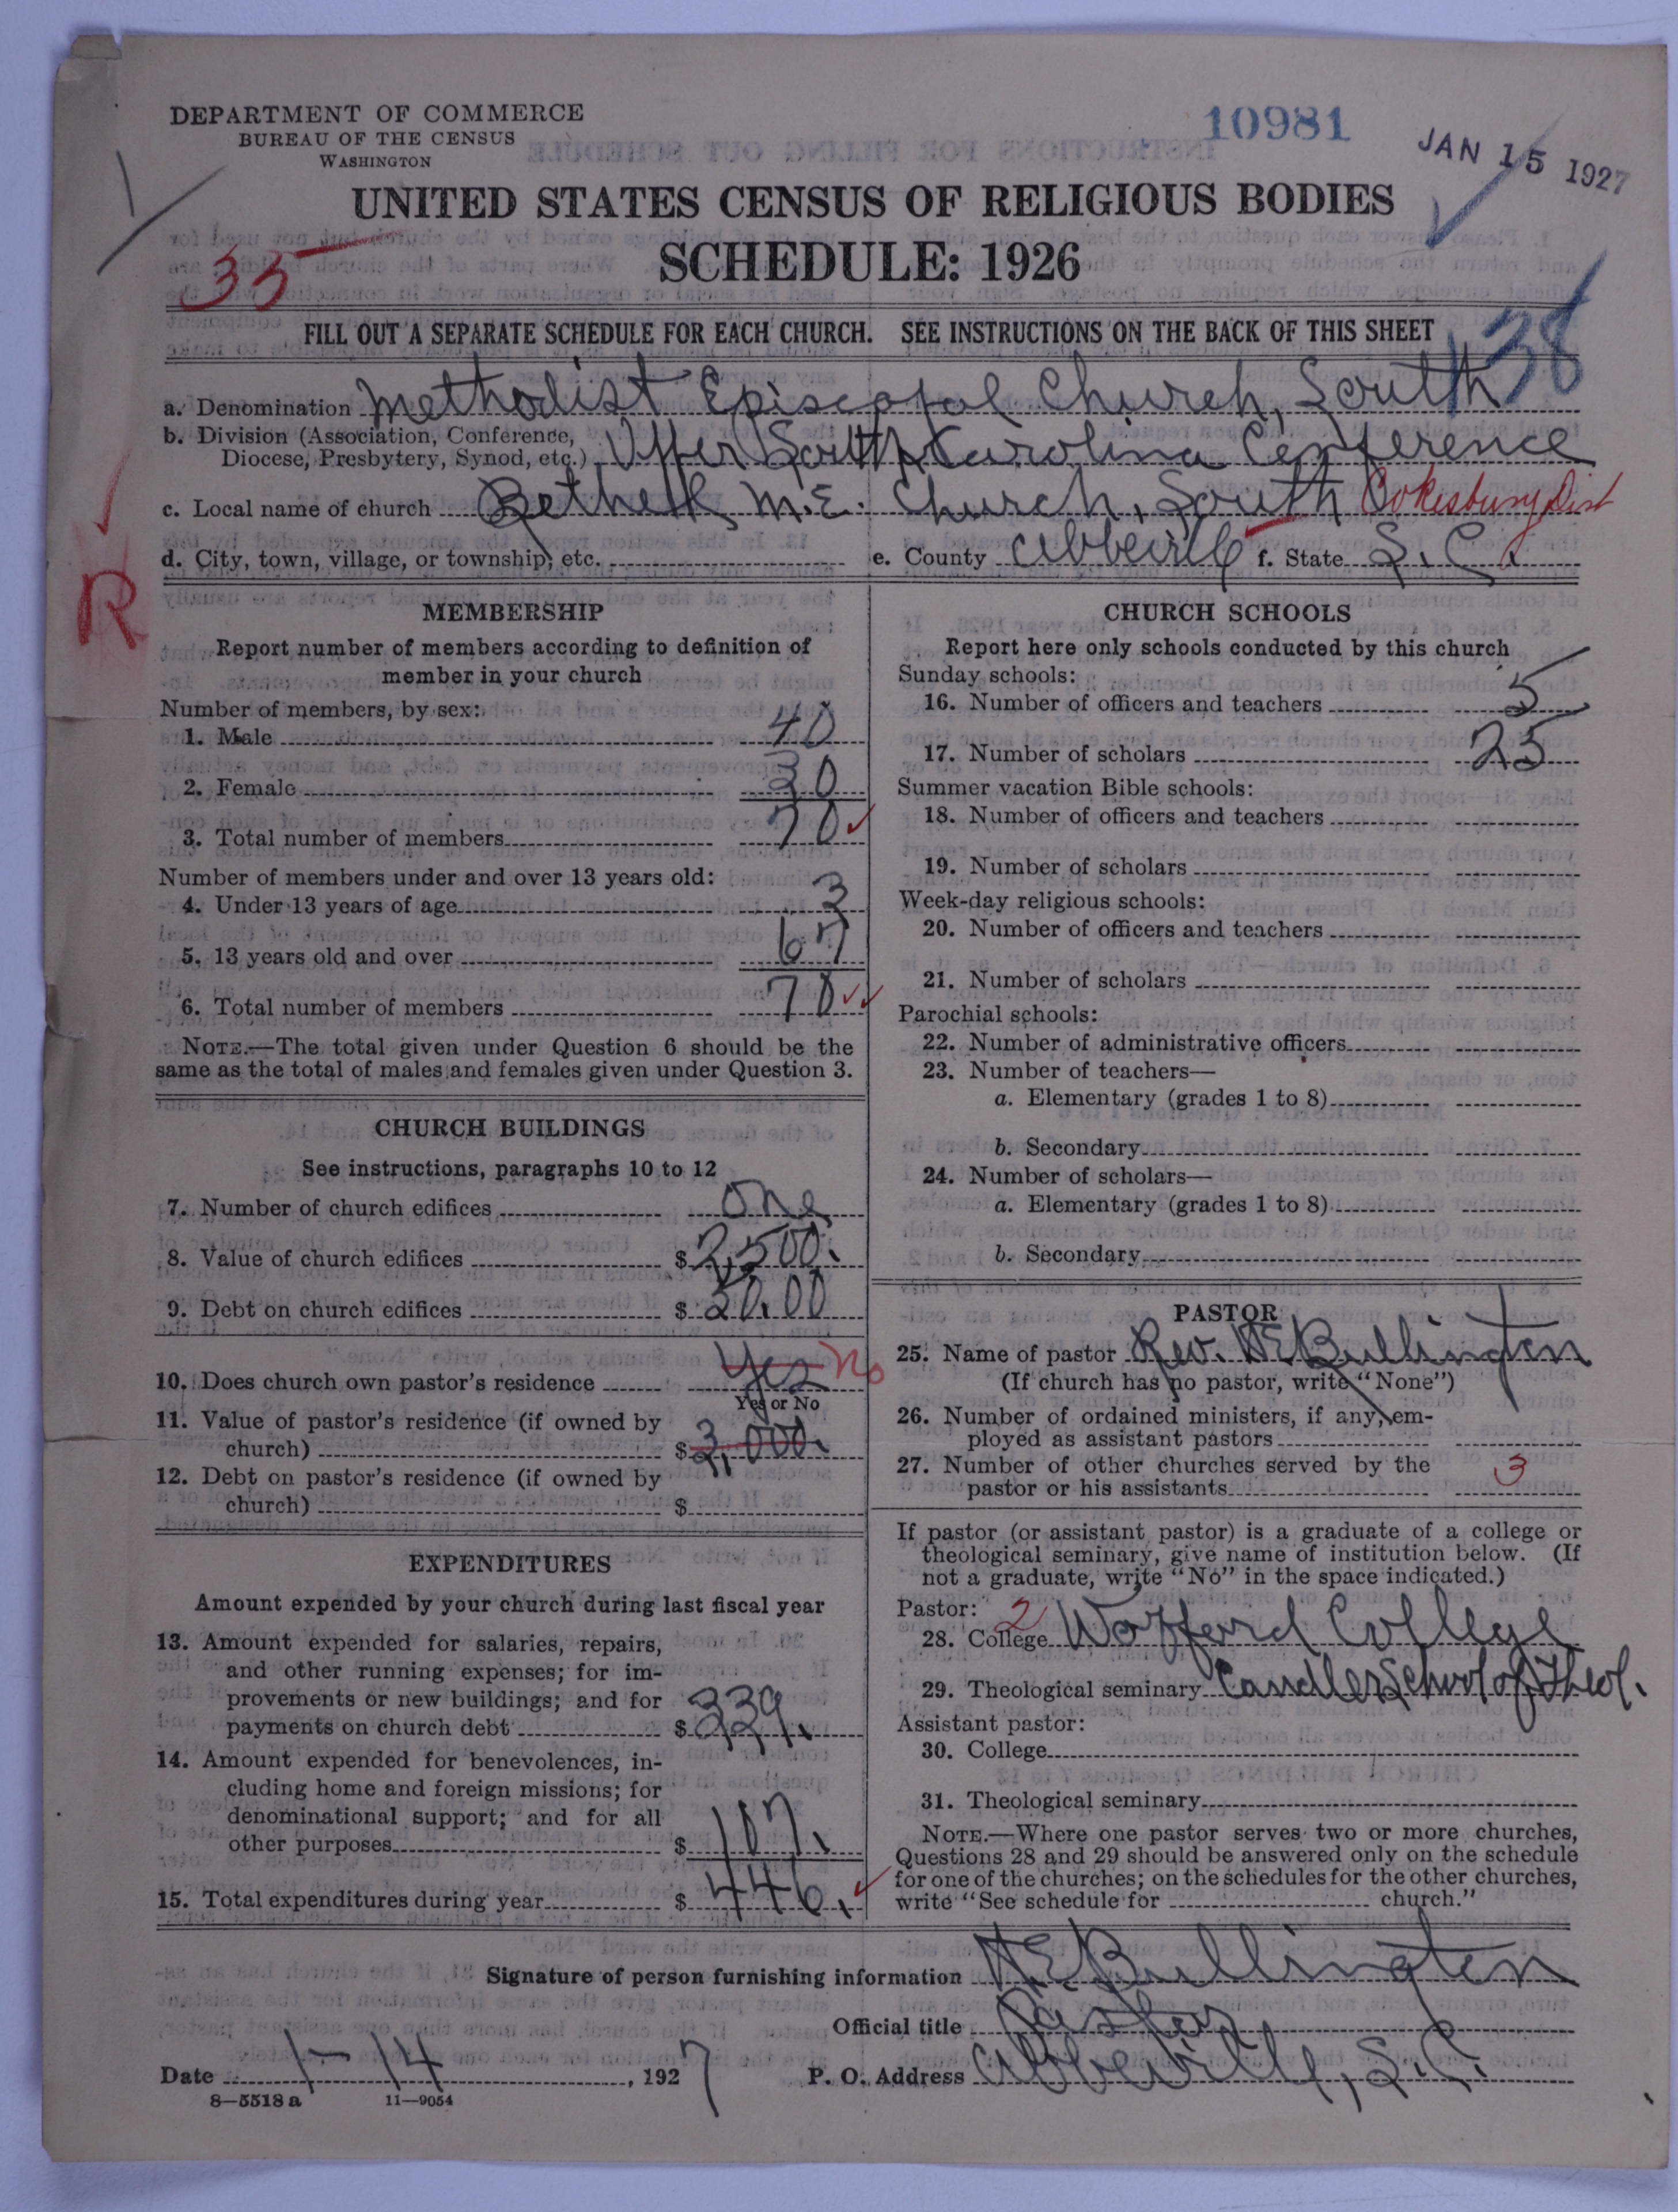 DEPARTMENT OF COMMERCE
BUREAU OF THE CENSUS
WASHINGTON
10981
JAN 15 1927
UNITED STATES CENSUS OF RELIGIOUS BODIES
SCHEDULE: 1926
35
FILL OUT A SEPARATE SCHEDULE FOR EACH CHURCH. SEE INSTRUCTIONS ON THE BACK OF THIS SHEET
38
a. Denomination Methodist Episcopal Church, South
b. Division (Association, Conference,
Diocese, Presbytery, Synod, etc.) Upper South Carolina Conference
c. Local name of church Bethel M.E. Church, South Cokesbury Dist
d. City, town, village, or township, etc. e. County Abbeville f. State S.C.
R
MEMBERSHIP
Report number of members according to definition of
member in your church
Number of members, by sex:
1. Male 40
2. Female 30
3. Total number of members 70
Number of members under and over 13 years old:
4. Under 13 years of age 3
5. 13 years old and over 67
6. Total number of members 70
NOTE.—The total given under Question 6 should be the
same as the total of males and females given under Question 3.
CHURCH BUILDINGS
See instructions, paragraphs 10 to 12
7. Number of church edifices One
8. Value of church edifices $ 2,500.
9. Debt on church edifices $ 20.00
10. Does church own pastor's residence Yes No
Yes or No
11. Value of pastor's residence (if owned by
church) $ 3,000.
12. Debt on pastor's residence (if owned by
church) $
EXPENDITURES
Amount expended by your church during last fiscal year
13. Amount expended for salaries, repairs,
and other running expenses; for im-
provements or new buildings; and for
payments on church debt $ 339.
14. Amount expended for benevolences, in-
cluding home and foreign missions; for
denominational support; and for all
other purposes $ 107.
15. Total expenditures during year $ 446.
CHURCH SCHOOLS
Report here only schools conducted by this church
Sunday schools:
16. Number of officers and teachers 5
17. Number of scholars 25
Summer vacation Bible schools:
18. Number of officers and teachers
19. Number of scholars
Week-day religious schools:
20. Number of officers and teachers
21. Number of scholars
Parochial schools:
22. Number of administrative officers
23. Number of teachers—
a. Elementary (grades 1 to 8)
b. Secondary
24. Number of scholars—
a. Elementary (grades 1 to 8)
b. Secondary
PASTOR
25. Name of pastor Rev. NE Bullington
(If church has no pastor, write "None")
26. Number of ordained ministers, if any, em-
ployed as assistant pastors
27. Number of other churches served by the
pastor or his assistants 3
If pastor (or assistant pastor) is a graduate of a college or
theological seminary, give name of institution below. (If
not a graduate, write "No" in the space indicated.)
Pastor: 2
28. College Wofford College
29. Theological seminary Candler School of Theol.
Assistant pastor:
30. College
31. Theological seminary
NOTE.—Where one pastor serves two or more churches,
Questions 28 and 29 should be answered only on the schedule
for one of the churches; on the schedules for the other churches,
write "See schedule for church."
Signature of person furnishing information NE Bullington
Official title Pastor
Date 1-14, 1927 P. O. Address Abbeville, S.C.
8—5518 a 11—9054